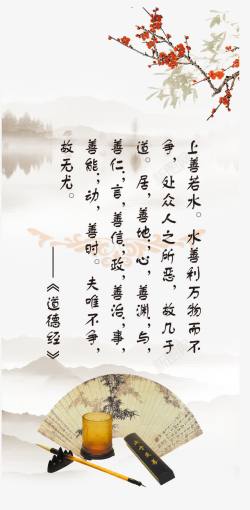 上善若水。水善利万物而不
争，处众人之所恶，故几于
道。居，善地；心，善渊，与，
善仁；言，善信，政，善治，事，
善能；动，善时。夫唯不争，
故无尤。
——《道德经》